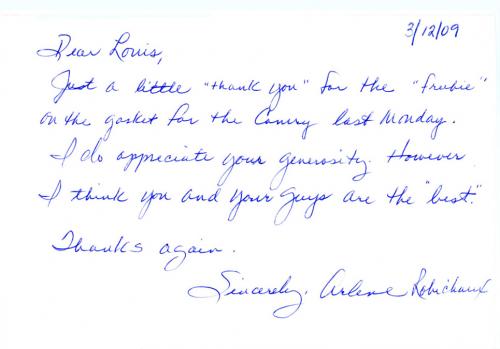 3/12/09
Dear Louis,
Just a little "thank you" for the "freebie"
on the gasket for the Camry last Monday.
I do appreciate your generosity. However
I think you and your guys are the "best."
Thanks again.
Sincerely, Arlene Robichaux